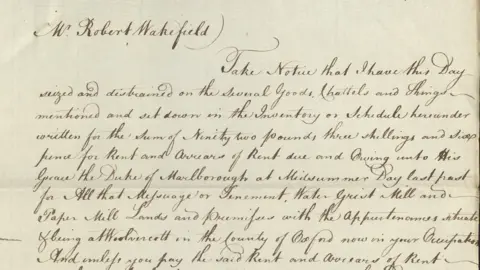 Mr Robert Wakefield
Take Notice that I have this Day
seized and distrained on the several Goods, Chattels and Things
mentioned and set down in the Inventory or Schedule hereunder
written for the Sum of Ninety two pounds three shillings and Six
pence for Rent and Arrears of Rent due and Owing unto His
Grace the Duke of Marlborough at Midsummer Day last past
for All that Messuage or Tenement, Water Grist Mill and
Paper Mill Lands and premisses with the Appurtenances situate
& being at Woolvercott in the County of Oxford now in your Occupation
And unless you pay the said Rent and Arrears of Rent